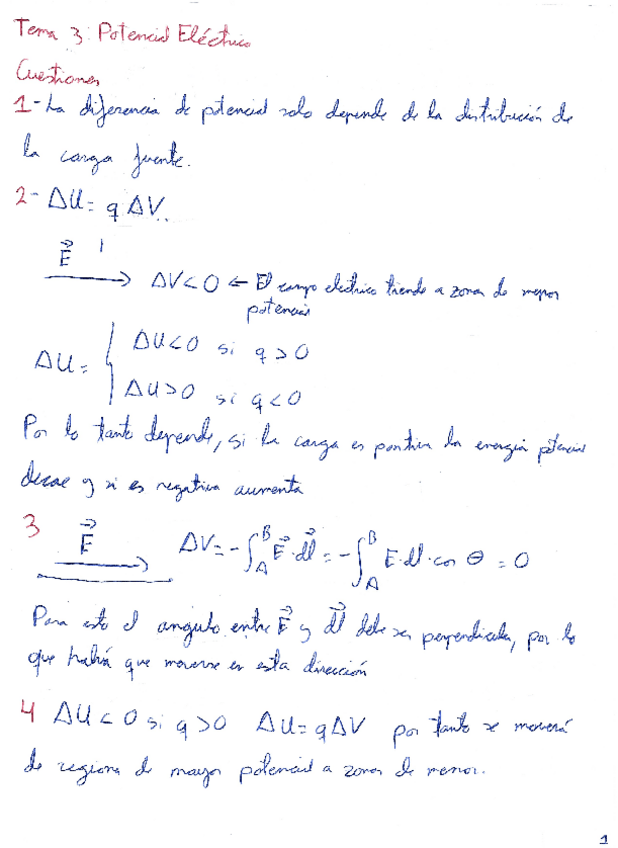 Tema 3: Potencial Eléctrico
Cuestiones
1- La diferencia de potencial solo depende de la distribución de
la carga fuente.
2- ΔU = q ΔV.
E⃗
ΔV < 0 ← El campo eléctrico tiende a zonas de menor
potencial
ΔU = { ΔU < 0 si q > 0
ΔU > 0 si q < 0
Por lo tanto depende, si la carga es positiva la energía potencial
decae y si es negativa aumenta
3 E⃗ ΔV = -∫_A^B E⃗·dl⃗ = -∫_A^B E·dl·cos θ = 0
Para esto el angulo entre E⃗ y dl⃗ debe ser perpendicular, por lo
que habrá que moverse en esta dirección
4 ΔU < 0 si q > 0 ΔU = qΔV por tanto se moverá
de regiones de mayor potencial a zonas de menor.
1